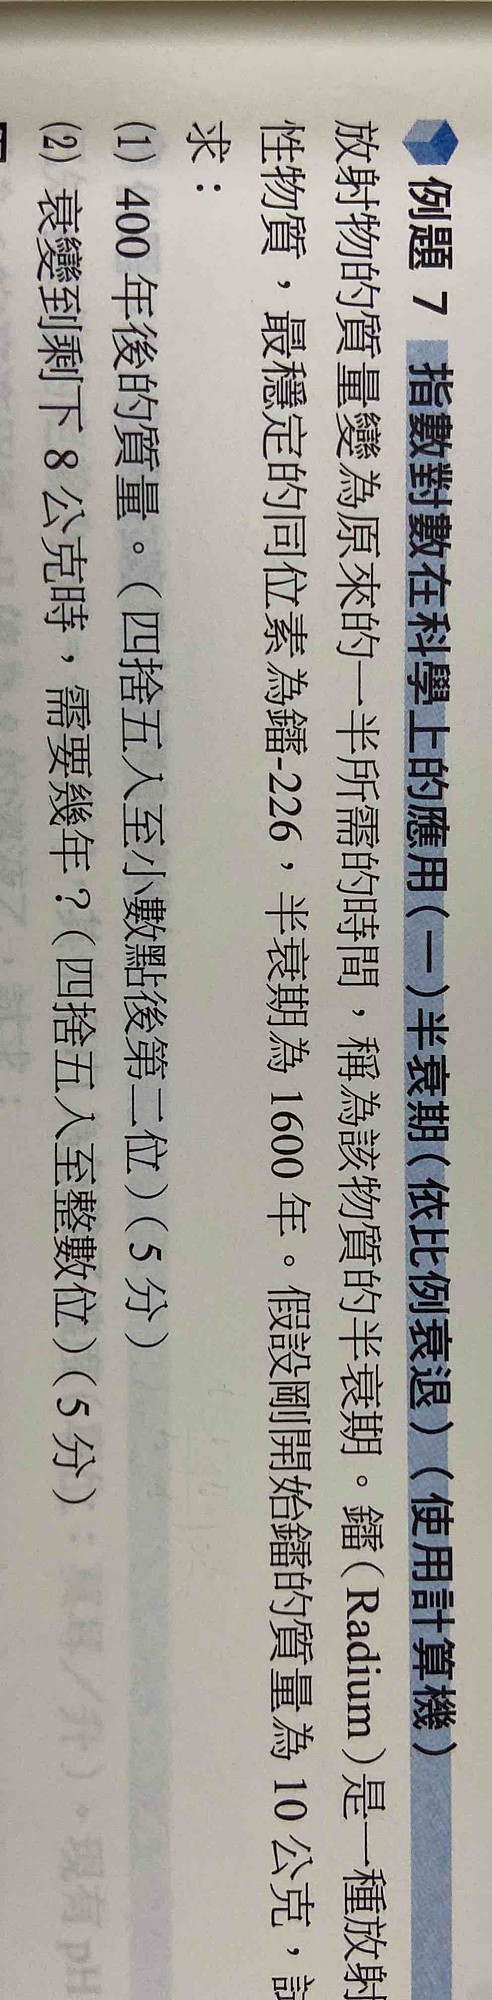 例題 7 指數對數在科學上的應用(一)半衰期(依比例衰退)(使用計算機)
放射物的質量變為原來的一半所需的時間,稱為該物質的半衰期。鐳(Radium)是一種放射
性物質,最穩定的同位素為鐳-226,半衰期為 1600 年。假設剛開始鐳的質量為 10 公克,試
求:
(1) 400 年後的質量。(四捨五入至小數點後第二位)(5 分)
(2) 衰變到剩下 8 公克時,需要幾年?(四捨五入至整數位)(5 分)